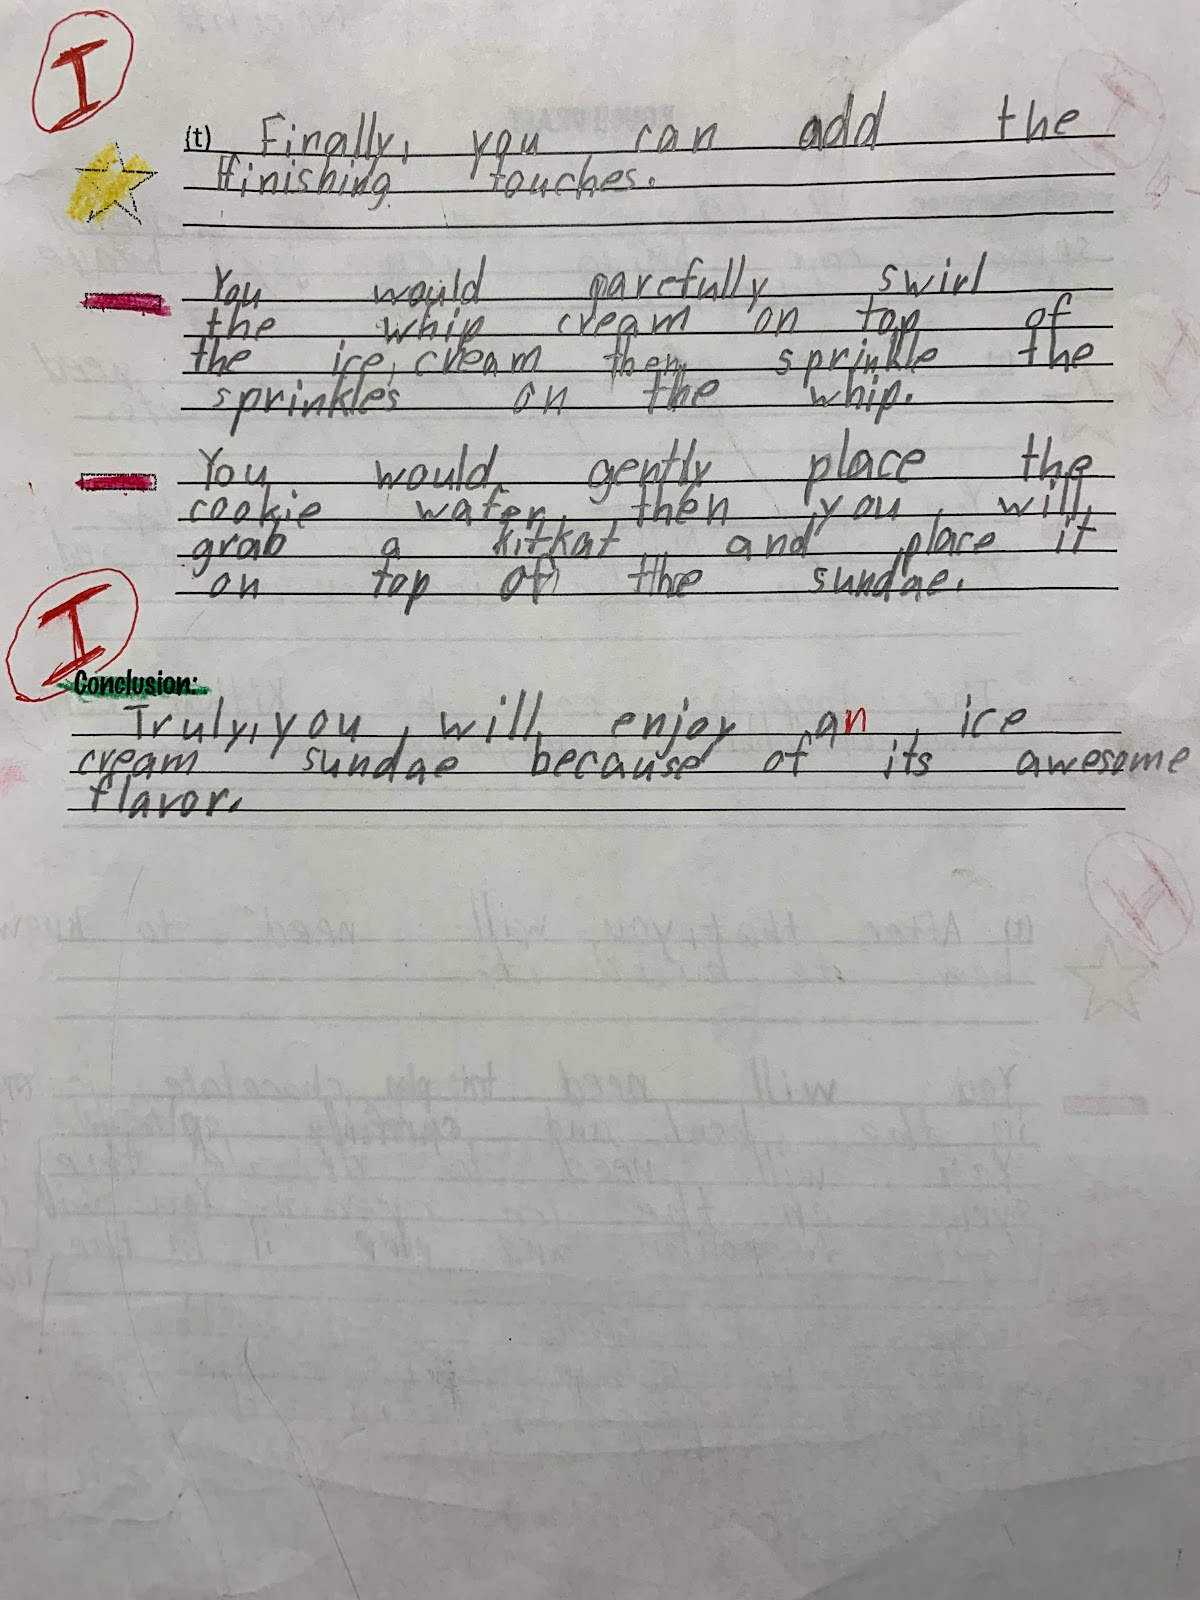 I
(t) Finally, you can add the
finishing touches.
You would carefully swirl
the whip cream on top of
the ice cream then sprinkle the
sprinkles on the whip.
You would gently place the
cookie wafer, then you will
grab a kitkat and place it
on top of the sundae.
I
Conclusion:
Truly, you will enjoy an ice
cream sundae because of its awesome
flavor.